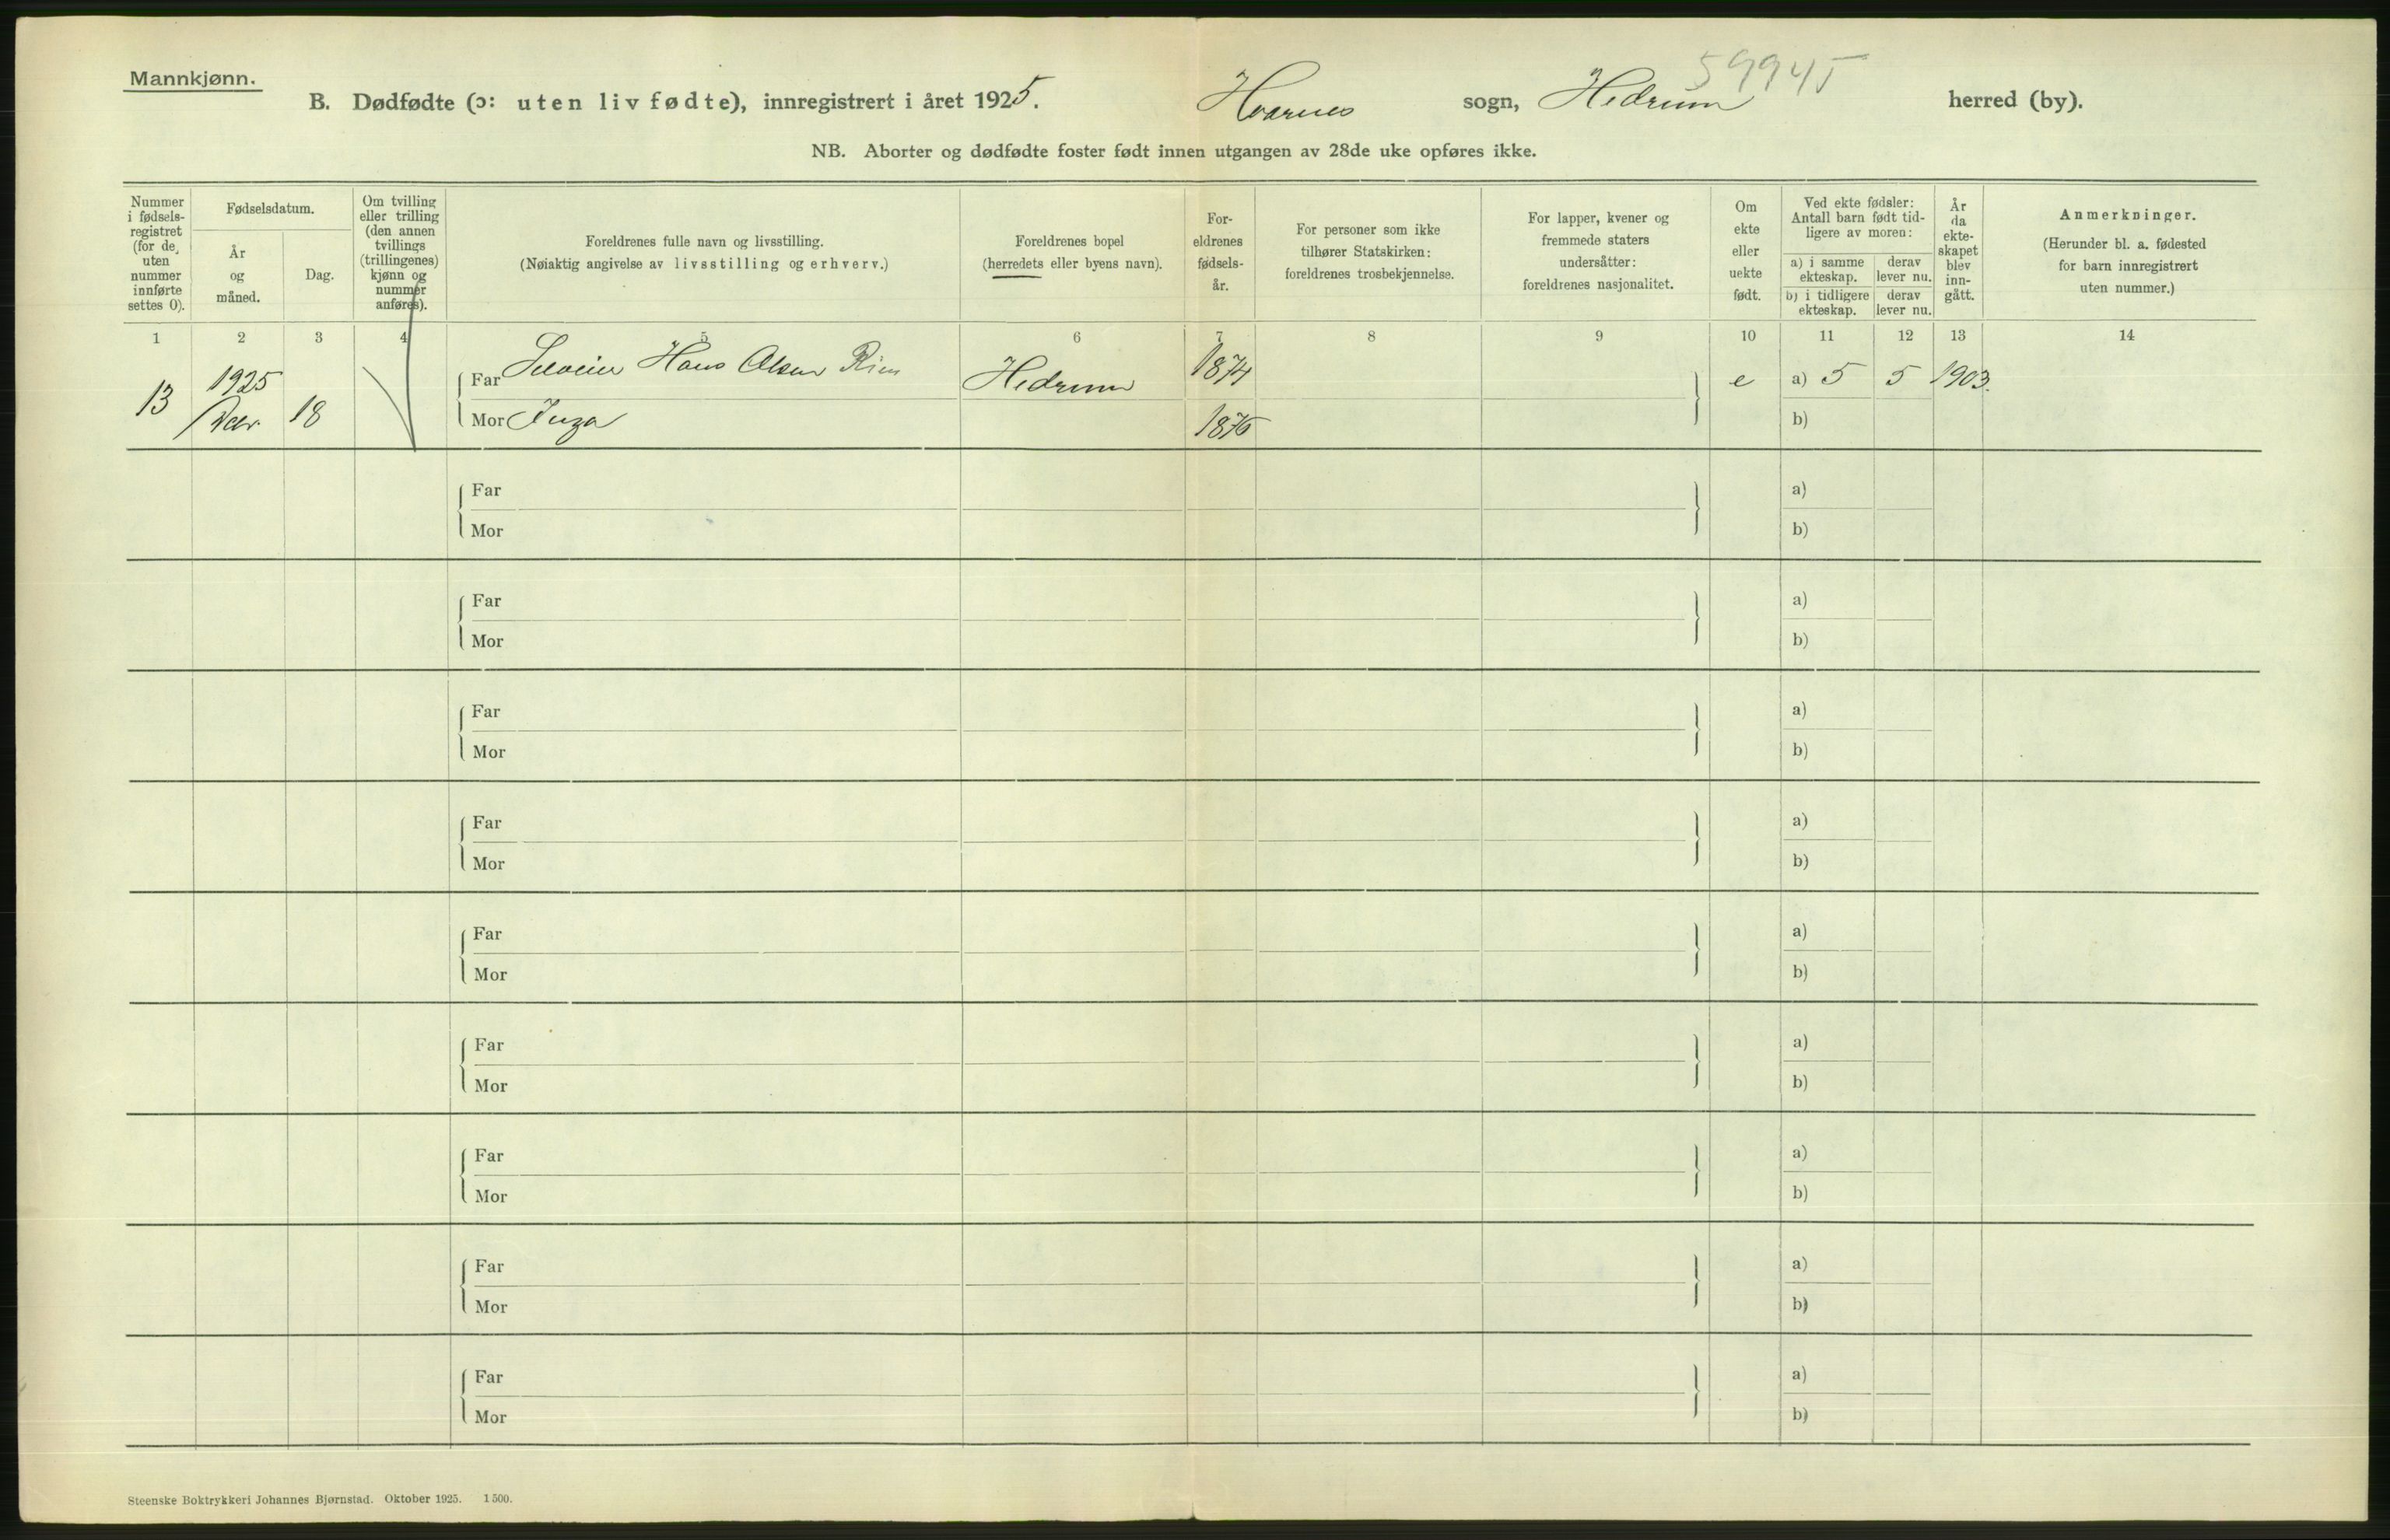 59945
Mannkjønn.
B. Dødfødte (ɔ: uten liv fødte), innregistrert i året 1925. Hvarnes sogn, Hedrum herred (by).
NB. Aborter og dødfødte foster født innen utgangen av 28de uke opføres ikke.
Nummer
i fødsels-
registret
(for de
uten
nummer
innførte
settes 0).
Fødselsdatum.
År
og
måned.
Dag.
Om tvilling
eller trilling
(den annen
tvillings
(trillingenes)
kjønn og
nummer
anføres).
Foreldrenes fulle navn og livsstilling.
(Nøiaktig angivelse av livsstilling og erhverv.)
Foreldrenes bopel
(herredets eller byens navn).
For-
eldrenes
fødsels-
år.
For personer som ikke
tilhører Statskirken:
foreldrenes trosbekjennelse.
For lapper, kvener og
fremmede staters
undersåtter:
foreldrenes nasjonalitet.
Om
ekte
eller
uekte
født.
Ved ekte fødsler:
Antall barn født tid-
ligere av moren:
a) i samme
ekteskap.
derav
lever nu.
b) i tidligere
ekteskap.
derav
lever nu.
År
da
ekte-
skapet
blev
inn-
gått.
Anmerkninger.
(Herunder bl. a. fødested
for barn innregistrert
uten nummer.)
1 2 3 4 5 6 7 8 9 10 11 12 13 14
13 1925 Far Selveier Hans Olsen Hedrum 1874 e a) 5 5 1903.
Decbr. 18 Mor Inga 1876 b)
Far a)
Mor b)
Far a)
Mor b)
Far a)
Mor b)
Far a)
Mor b)
Far a)
Mor b)
Far a)
Mor b)
Far a)
Mor b)
Far a)
Mor b)
Far a)
Mor b)
Steenske Boktrykkeri Johannes Bjørnstad. Oktober 1925. 1500.